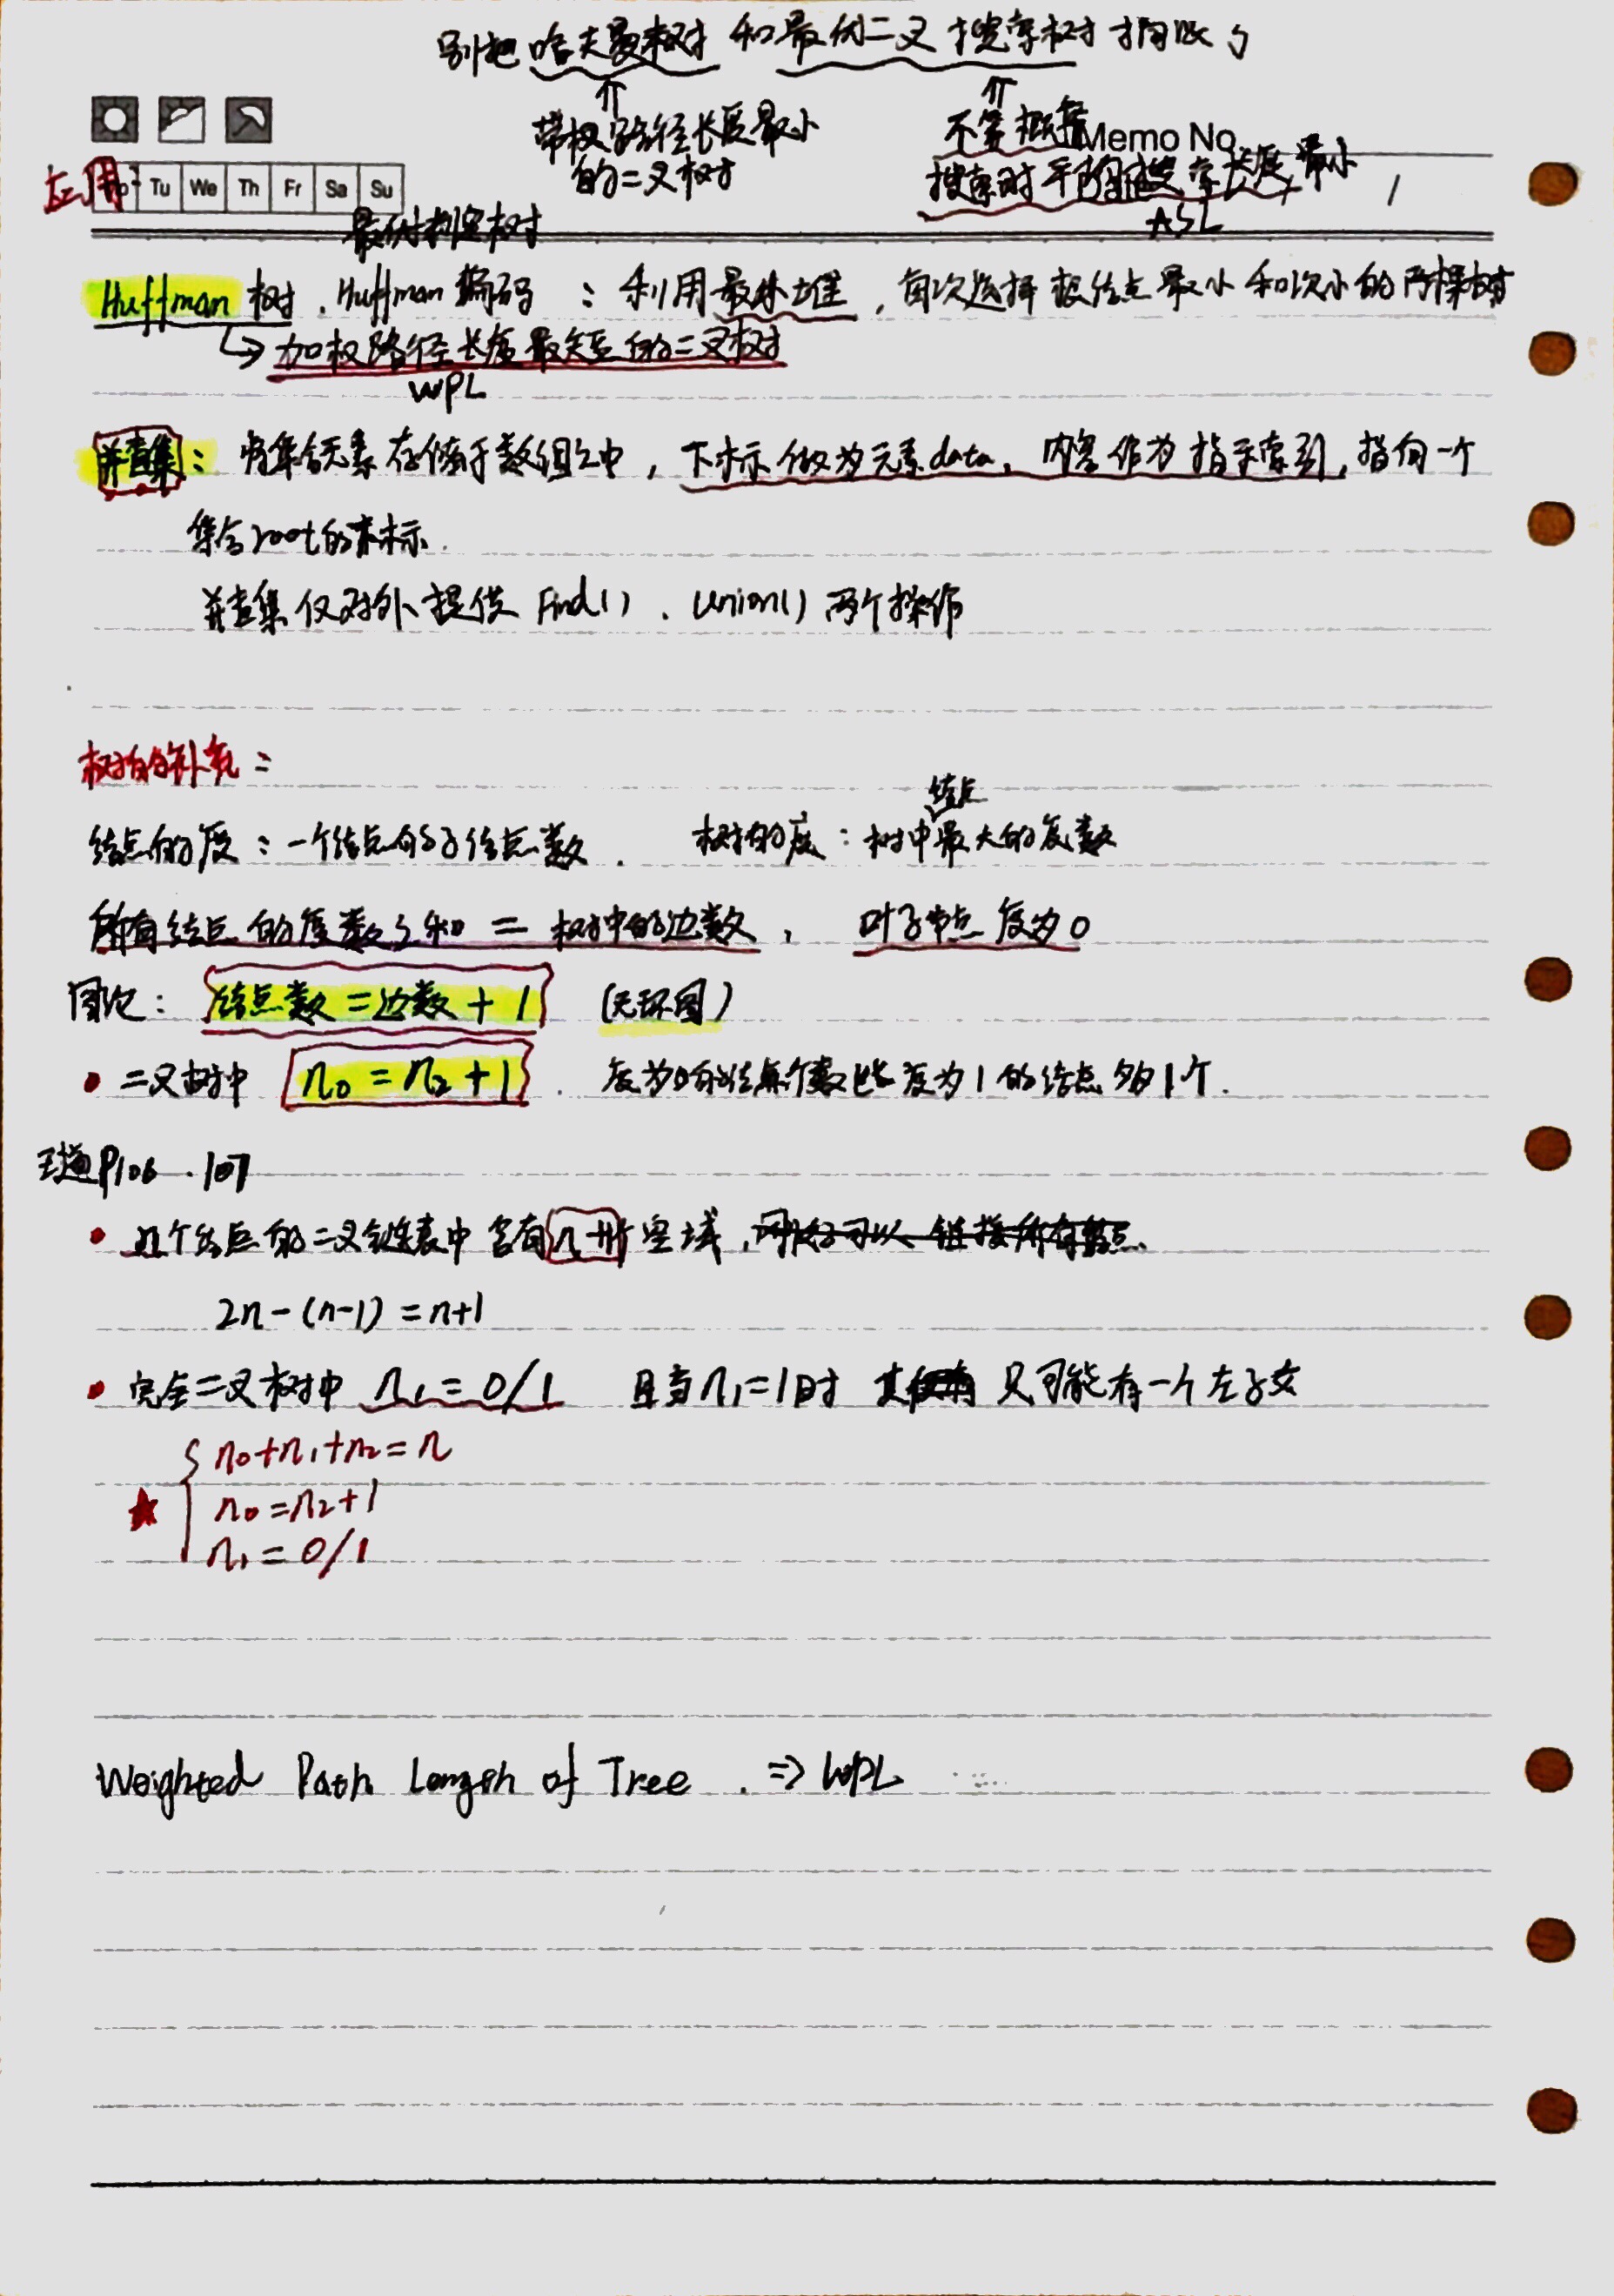 别把哈夫曼树和最优二叉搜索树搞混了
⇑ ⇑
带权路径长度最小 不等概率 Memo No.
的二叉树 搜索时平均搜索长度最小
ASL
应用 Tu We Th Fr Sa Su /
最优判定树
Huffman树、Huffman编码：利用最小堆，每次选择根结点最小和次小的两棵树
↳ 加权路径长度最短的二叉树
WPL
并查集：将集合元素存储于数组之中，下标做为元素data、内容作为指示索引，指向一个
集合root的下标.
并查集仅对外提供 Find()、Union()两个操作
树的补充：
结点的度：一个结点的子结点数． 树的度：树中结点最大的度数
所有结点的度数之和 = 树中的边数， 叶子节点度为0
图论： 结点数=边数+1 (无环图)
• 二叉树中 n₀=n₂+1． 度为0的结点个数比度为1的结点多1个．
王道P106．107
• n个结点的二叉链表中含有n+1个空域，
2n-(n-1)=n+1
• 完全二叉树中 n₁=0/1 且当n₁=1时 其 只可能有一个左子女
{ n₀+n₁+n₂=n
★ n₀=n₂+1
n₁=0/1
Weighted Path Length of Tree . ⇒ WPL